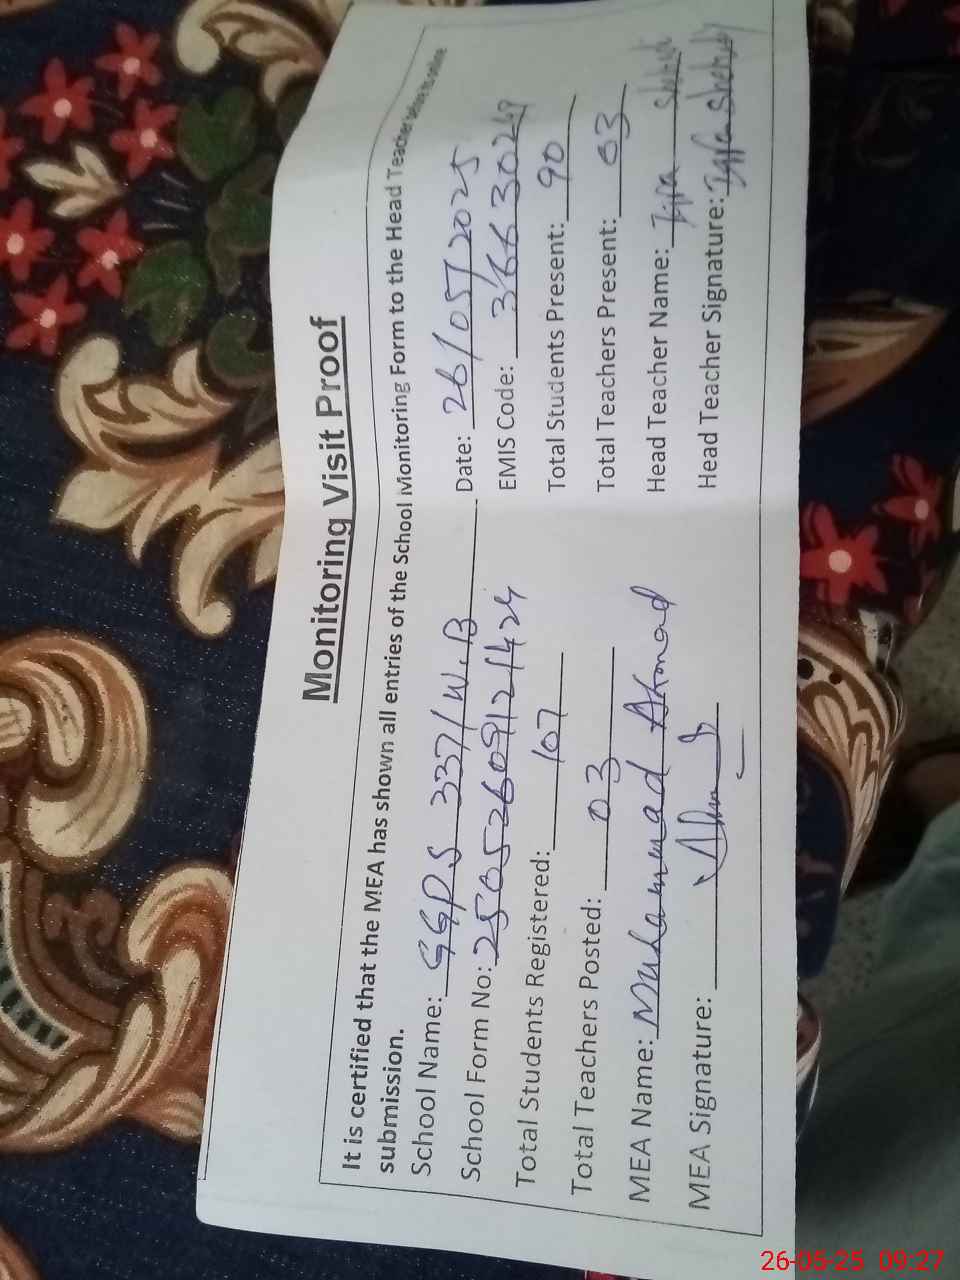 Monitoring Visit Proof
It is certified that the MEA has shown all entries of the School Monitoring Form to the Head Teacher before its online
submission.
School Name: GGPS 337/W.B Date: 26/05/2025
School Form No: 2505260912/1424 EMIS Code: 36630249
Total Students Registered: 107 Total Students Present: 90
Total Teachers Posted: 03 Total Teachers Present: 03
MEA Name: Muhammad Ahmad Head Teacher Name:
MEA Signature: Head Teacher Signature:
26-05-25 09:27